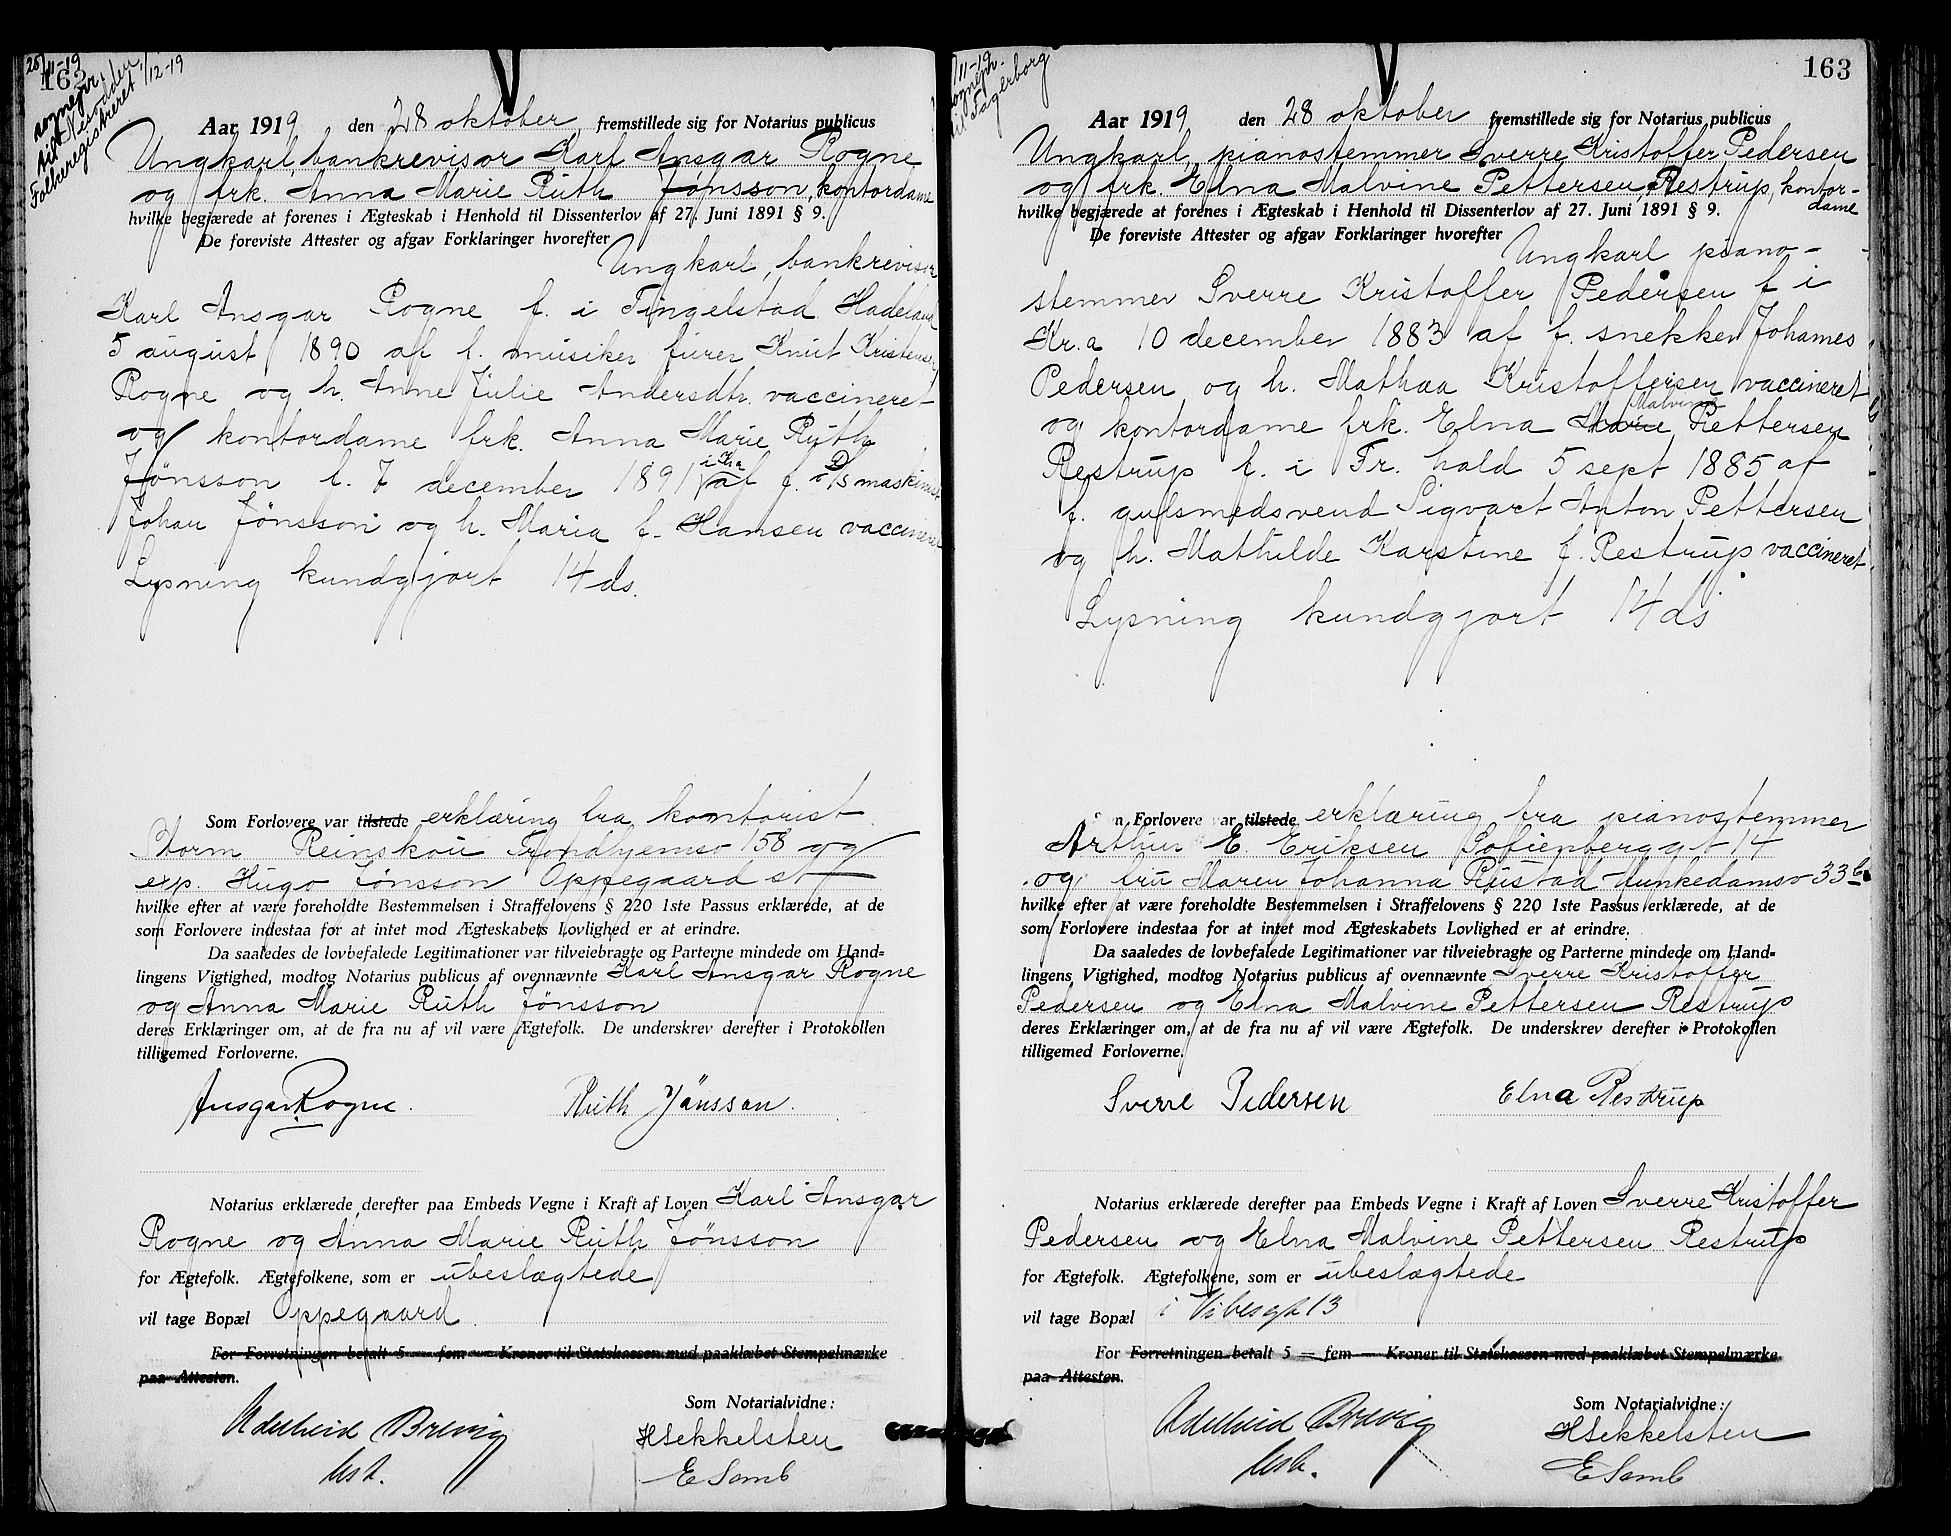 162
28/11-19
sognepr.
til Nesodden
Folkeregisteret 1/12-19
Aar 1919 den 28 oktober fremstillede sig for Notarius publicus
Ungkarl, bankrevisor Karl Ansgar Rogne
og frk. Anna Marie Ruth Jønsson, kontordame
hvilke begjærede at forenes i Ægteskab i Henhold til Dissenterlov af 27. Juni 1891 § 9.
De foreviste Attester og afgav Forklaringer hvorefter
Ungkarl, bankrevisor
Karl Ansgar Rogne f. i Tingelstad Hadeland
5 august 1890 af f. musiker furer Knut Kristensen
Rogne og h. Anne Julie Andersdtr. vaccineret
og kontordame frk. Anna Marie Ruth
Jønsson f. 7 december 1891 i Kra af f. D/S maskinist
Johan Jönsson og h. Maria f. Hansen vaccineret
Lysning kundgjort 14 ds.
Som Forlovere var tilstede erklæring fra kontorist
Storm Reinskou Trondhjemsv 158 og
exp. Hugo Jönsson Oppegaard st
hvilke efter at være foreholdte Bestemmelsen i Straffelovens § 220 1ste Passus erklærede, at de
som Forlovere indestaa for at intet mod Ægteskabets Lovlighed er at erindre.
Da saaledes de lovbefalede Legitimationer var tilveiebragte og Parterne mindede om Hand-
lingens Vigtighed, modtog Notarius publicus af ovennævnte Karl Ansgar Rogne
og Anna Marie Ruth Jönsson
deres Erklæringer om, at de fra nu af vil være Ægtefolk. De underskrev derefter i Protokollen
tilligemed Forloverne.
Ansgar Rogne. Ruth Jönsson.
Notarius erklærede derefter paa Embeds Vegne i Kraft af Loven Karl Ansgar
Rogne og Anna Marie Ruth Jönsson
for Ægtefolk. Ægtefolkene, som er ubeslægtede
vil tage Bopæl Oppegaard
For Forretningen betalt 5 — fem — Kroner til Statskassen med paaklæbet Stempelmærke
paa Attesten.
Som Notarialvidne:
Adelheid Brevig HSekkelsten
E Samb
163
/11-19
sognepr.
til Fagerborg
Aar 1919 den 28 oktober fremstillede sig for Notarius publicus
Ungkarl, pianostemmer Sverre Kristoffer Pedersen
og frk. Elna Malvine Pettersen Restrup, kontor-
dame
hvilke begjærede at forenes i Ægteskab i Henhold til Dissenterlov af 27. Juni 1891 § 9.
De foreviste Attester og afgav Forklaringer hvorefter
Ungkarl piano-
stemmer Sverre Kristoffer Pedersen f i
Kr.a 10 december 1883 af f. snekker Johannes
Pedersen og h. Mathea Kristoffersen vaccineret
og kontordame frk. Elna Marie Malvine Pettersen
Restrup f. i Fr. hald 5 sept 1885 af
f. gulsmedsvend Sigvart Anton Pettersen
og h. Mathilde Karstine f. Restrup vaccineret
Lysning kundgjort 14 ds
Som Forlovere var tilstede erklæring fra pianostemmer
Arthur E. Eriksen Sofienberggt 14
og fru Maren Johanna Rustad Munkedamsv 33 b.
hvilke efter at være foreholdte Bestemmelsen i Straffelovens § 220 1ste Passus erklærede, at de
som Forlovere indestaa for at intet mod Ægteskabets Lovlighed er at erindre.
Da saaledes de lovbefalede Legitimationer var tilveiebragte og Parterne mindede om Hand-
lingens Vigtighed, modtog Notarius publicus af ovennævnte Sverre Kristoffer
Pedersen og Elna Malvine Pettersen Restrup
deres Erklæringer om, at de fra nu af vil være Ægtefolk. De underskrev derefter i Protokollen
tilligemed Forloverne.
Sverre Pedersen Elna Restrup
Notarius erklærede derefter paa Embeds Vegne i Kraft af Loven Sverre Kristoffer
Pedersen og Elna Malvine Pettersen Restrup
for Ægtefolk. Ægtefolkene, som er ubeslægtede
vil tage Bopæl i Vibesgt 13
For Forretningen betalt 5 — fem — Kroner til Statskassen med paaklæbet Stempelmærke
paa Attesten.
Som Notarialvidne:
Adelheid Brevig HSekkelsten
E Samb